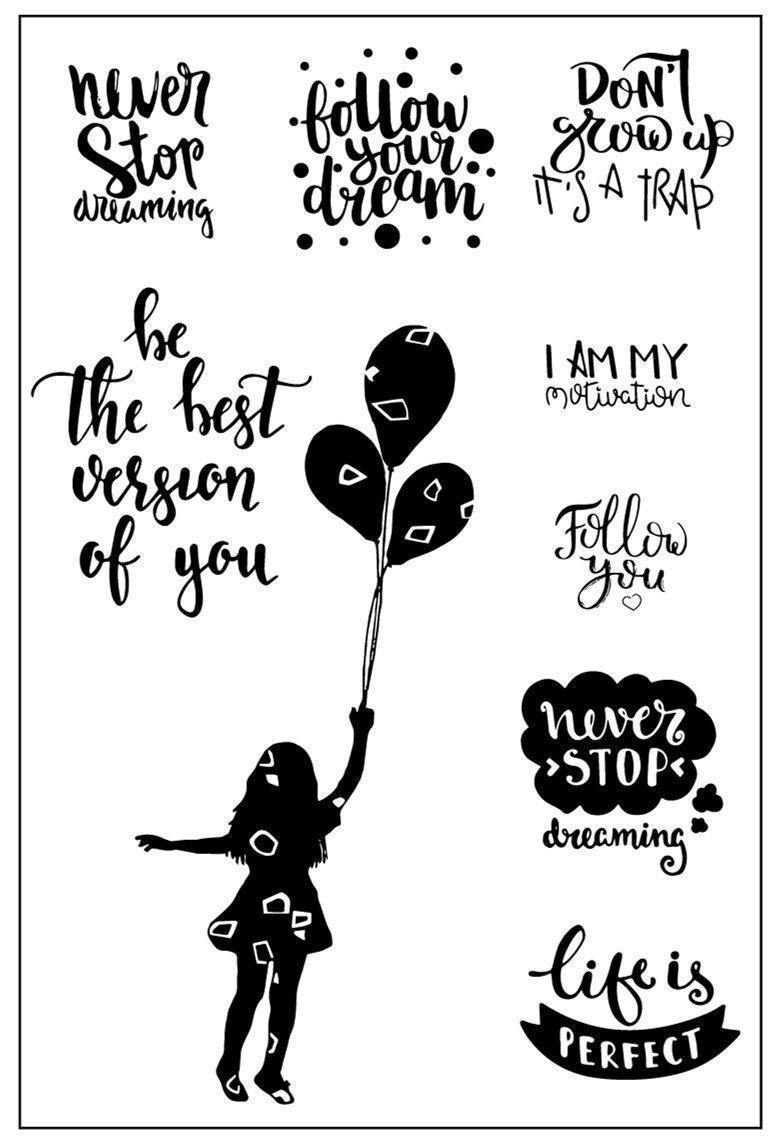 never
Stop
dreaming
follow
your
dream
DON'T
grow up
IT'S A TRAP
be
the best
version
of you
I AM MY
motivation
Follow
you
never
>STOP<
dreaming
life is
PERFECT